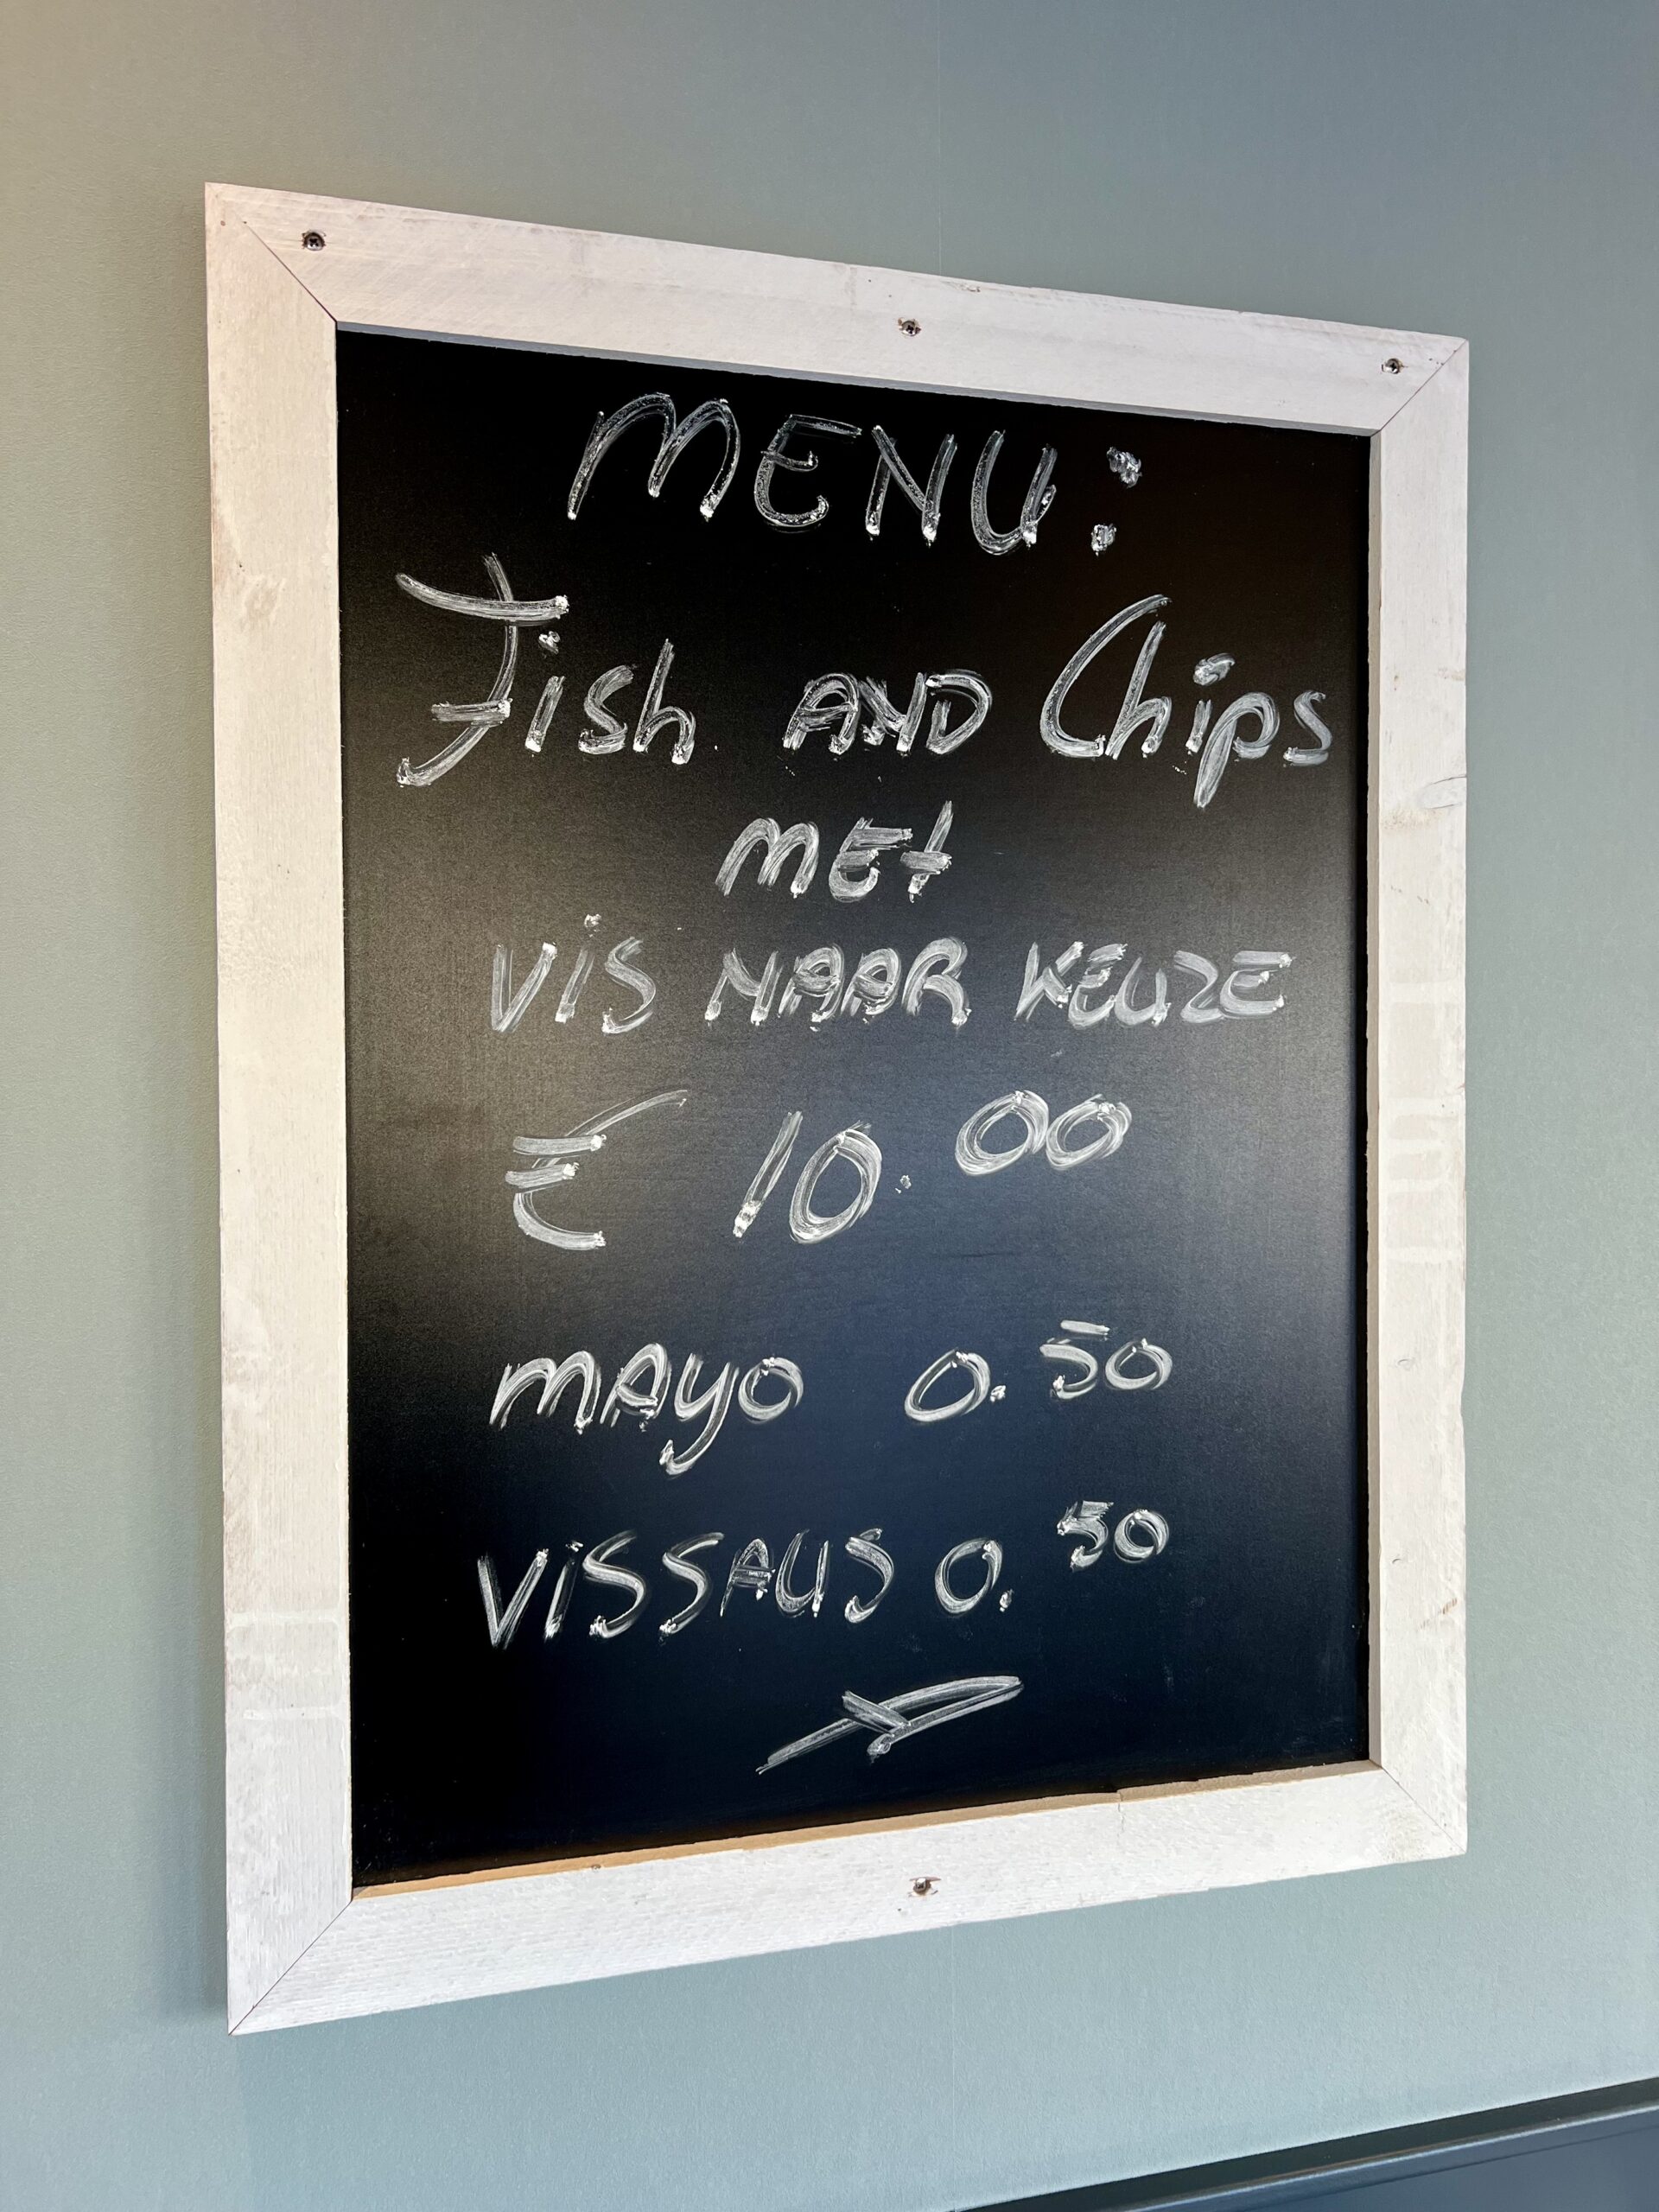 MENU:
Fish AND Chips
MEt
ViS NAAR KEUZE
€ 10.00
MAyo 0.50
ViSSAUS 0.50